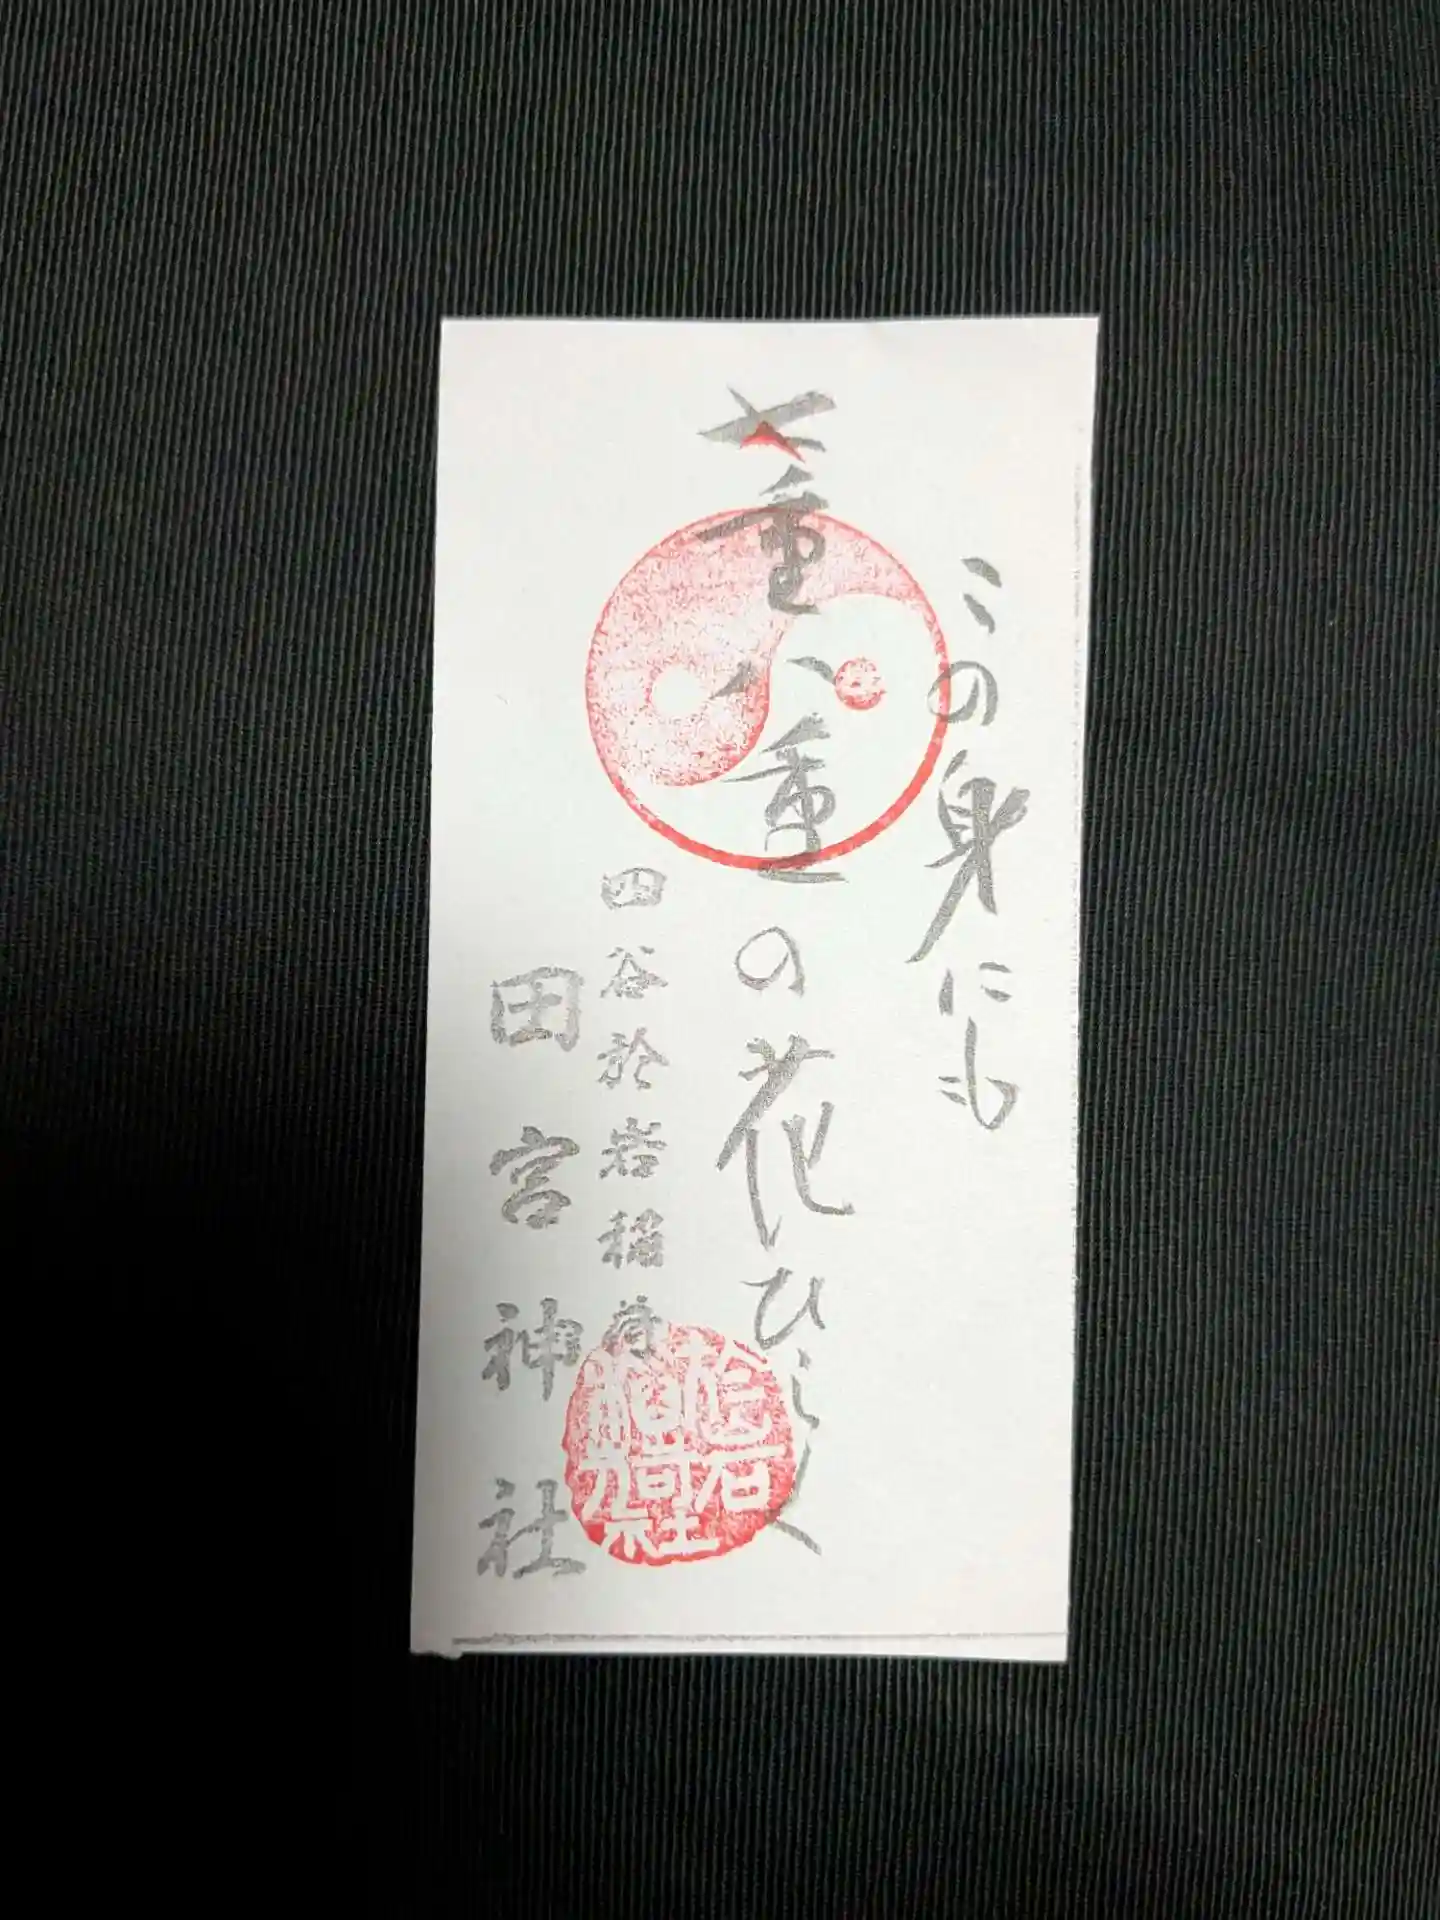 この身にも
七重八重の花ひらく
四谷於岩稲荷
田宮神社